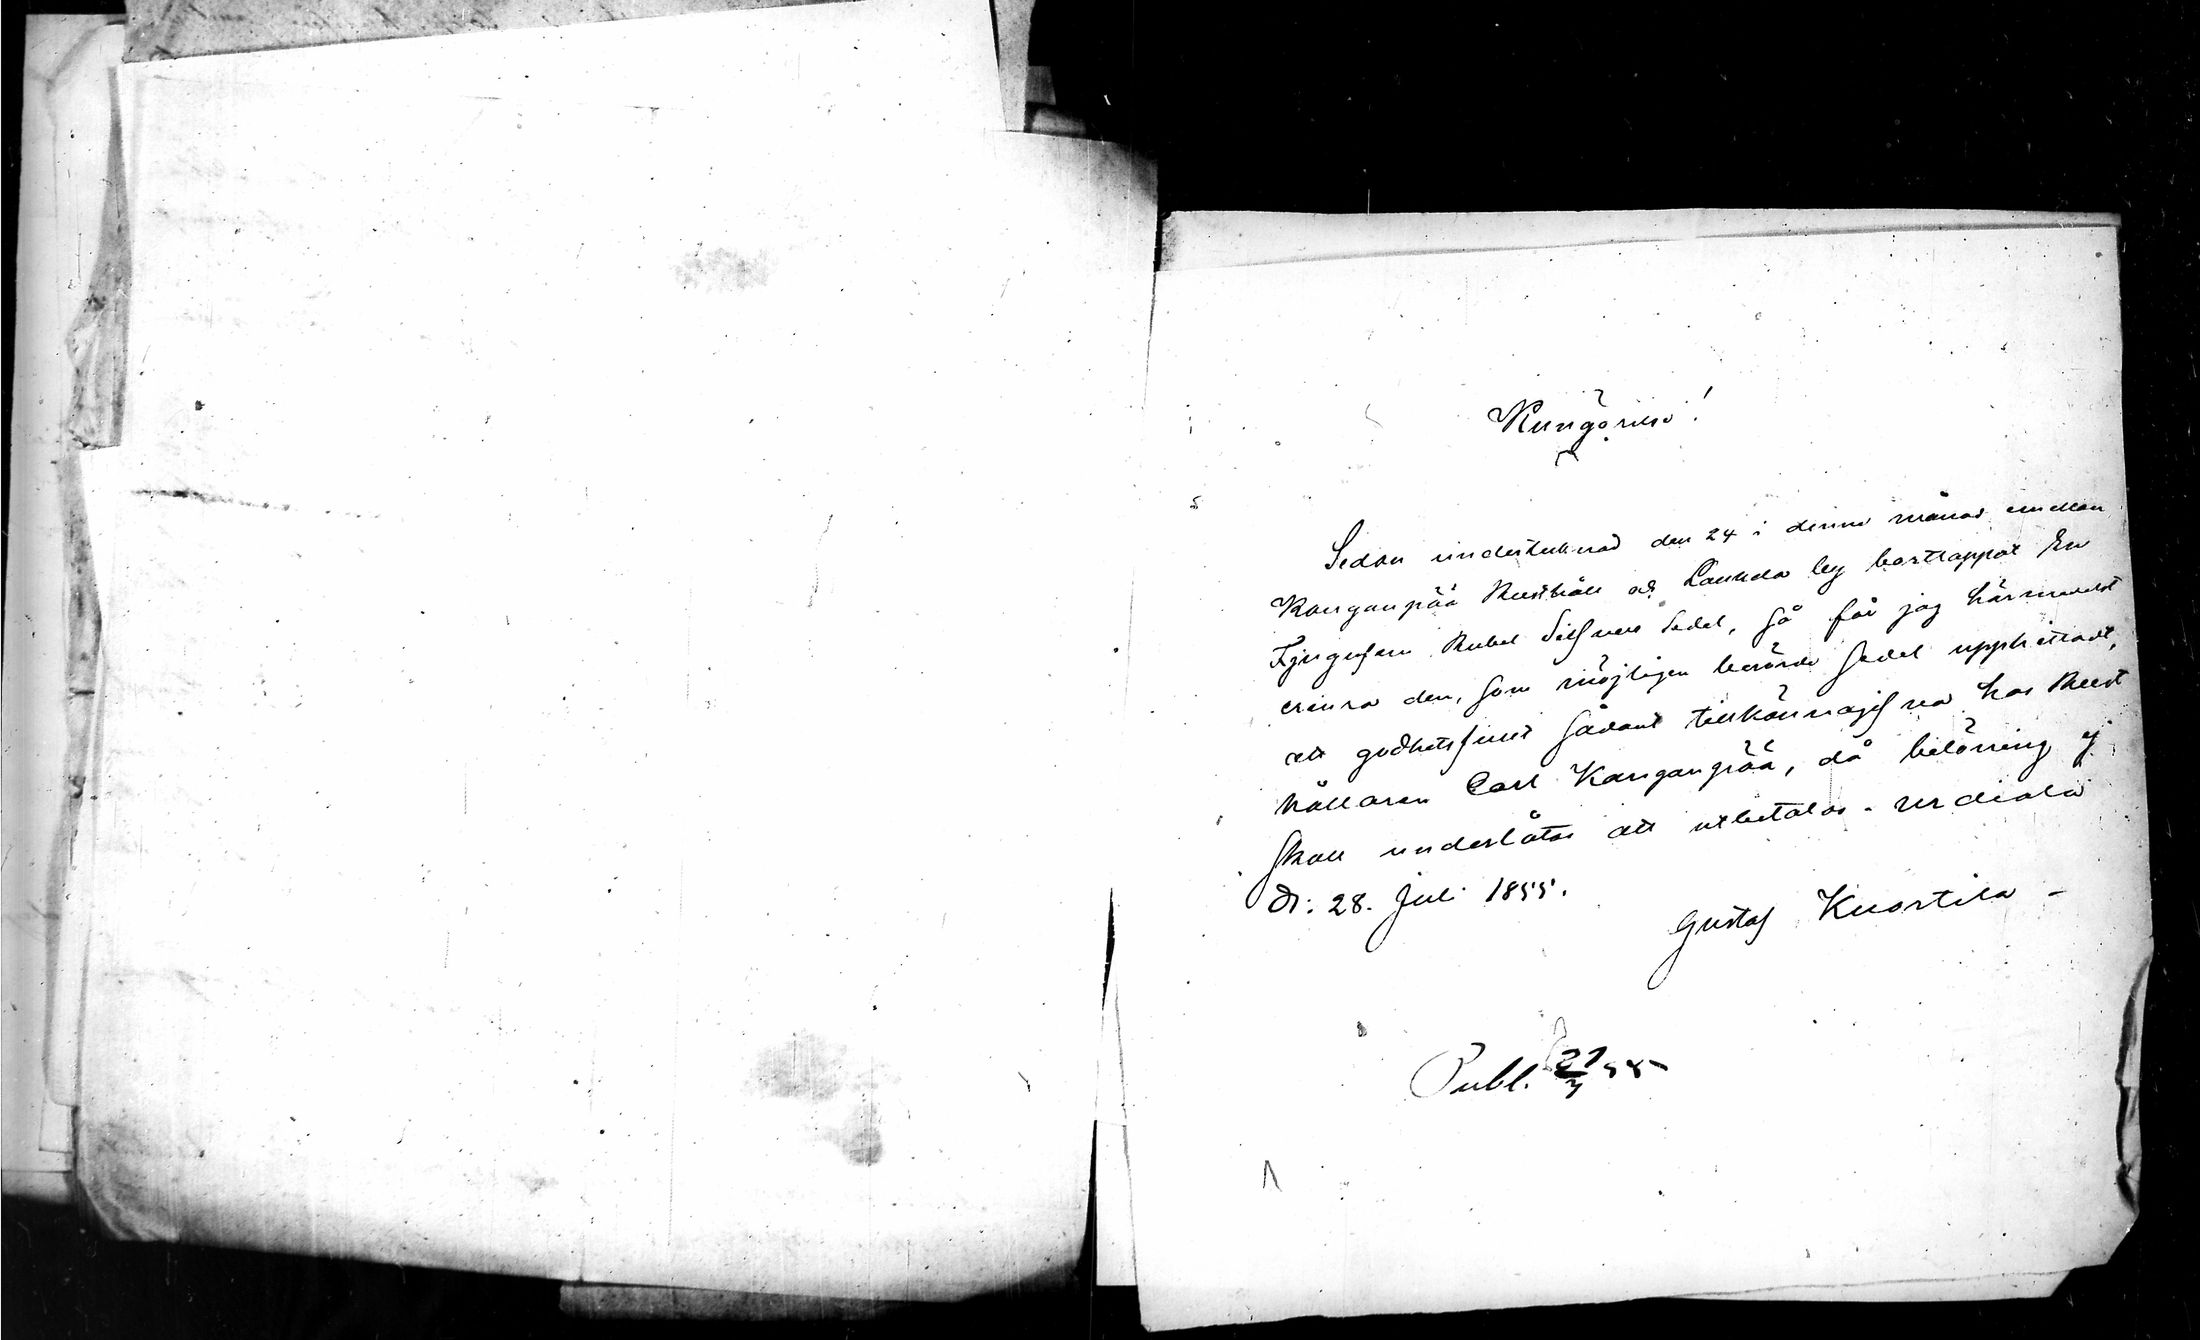 Kungörelse!
Sedan undertecknad den 24 i denna månad emellan
Kanganpää Rusthåll och Laukda by borttappat En
Tjugufem Rubel Silfvers Sedel, så får jag härmedelst
erinra den, som möjligen berörde Sedel upphittadt,
att godhetsfullt sådant tillkännagifva hos Rust
hållaren Carl Kanganpää, då belöning ej
skall underlåtas att utbetalas. Urdiala
d: 28. Juli 1855.
Gustaf Kuortila
Publ. 55